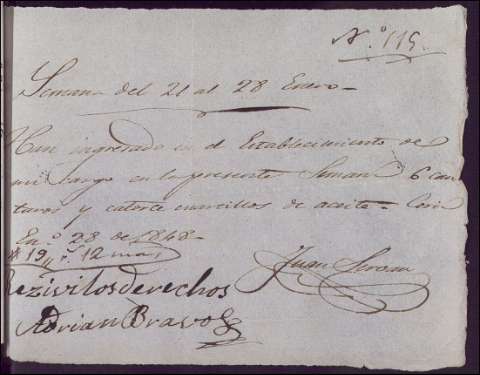 N.º 115.
Semana del 21 al 28 Enero
Han ingresado en el Establecimiento de
mi cargo en la presente Semana 6 can
taros y catorce cuartillos de aceite. Coria
En.º 28 de 1848
19 r.s 12 mrs
Rezivi los derechos
Adrian Bravo
Juan